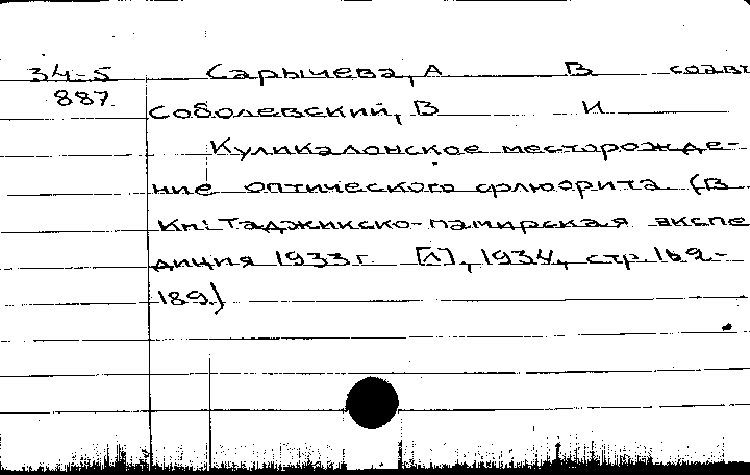 34-5 Сарычева, А В соавт
887 Соболевский, В И
Куликалонское месторожде-
ние оптического флюорита. (В
кн: Таджикско-памирская экспе
диция 1933 г. [Л], 1934, стр. 169-
189.)